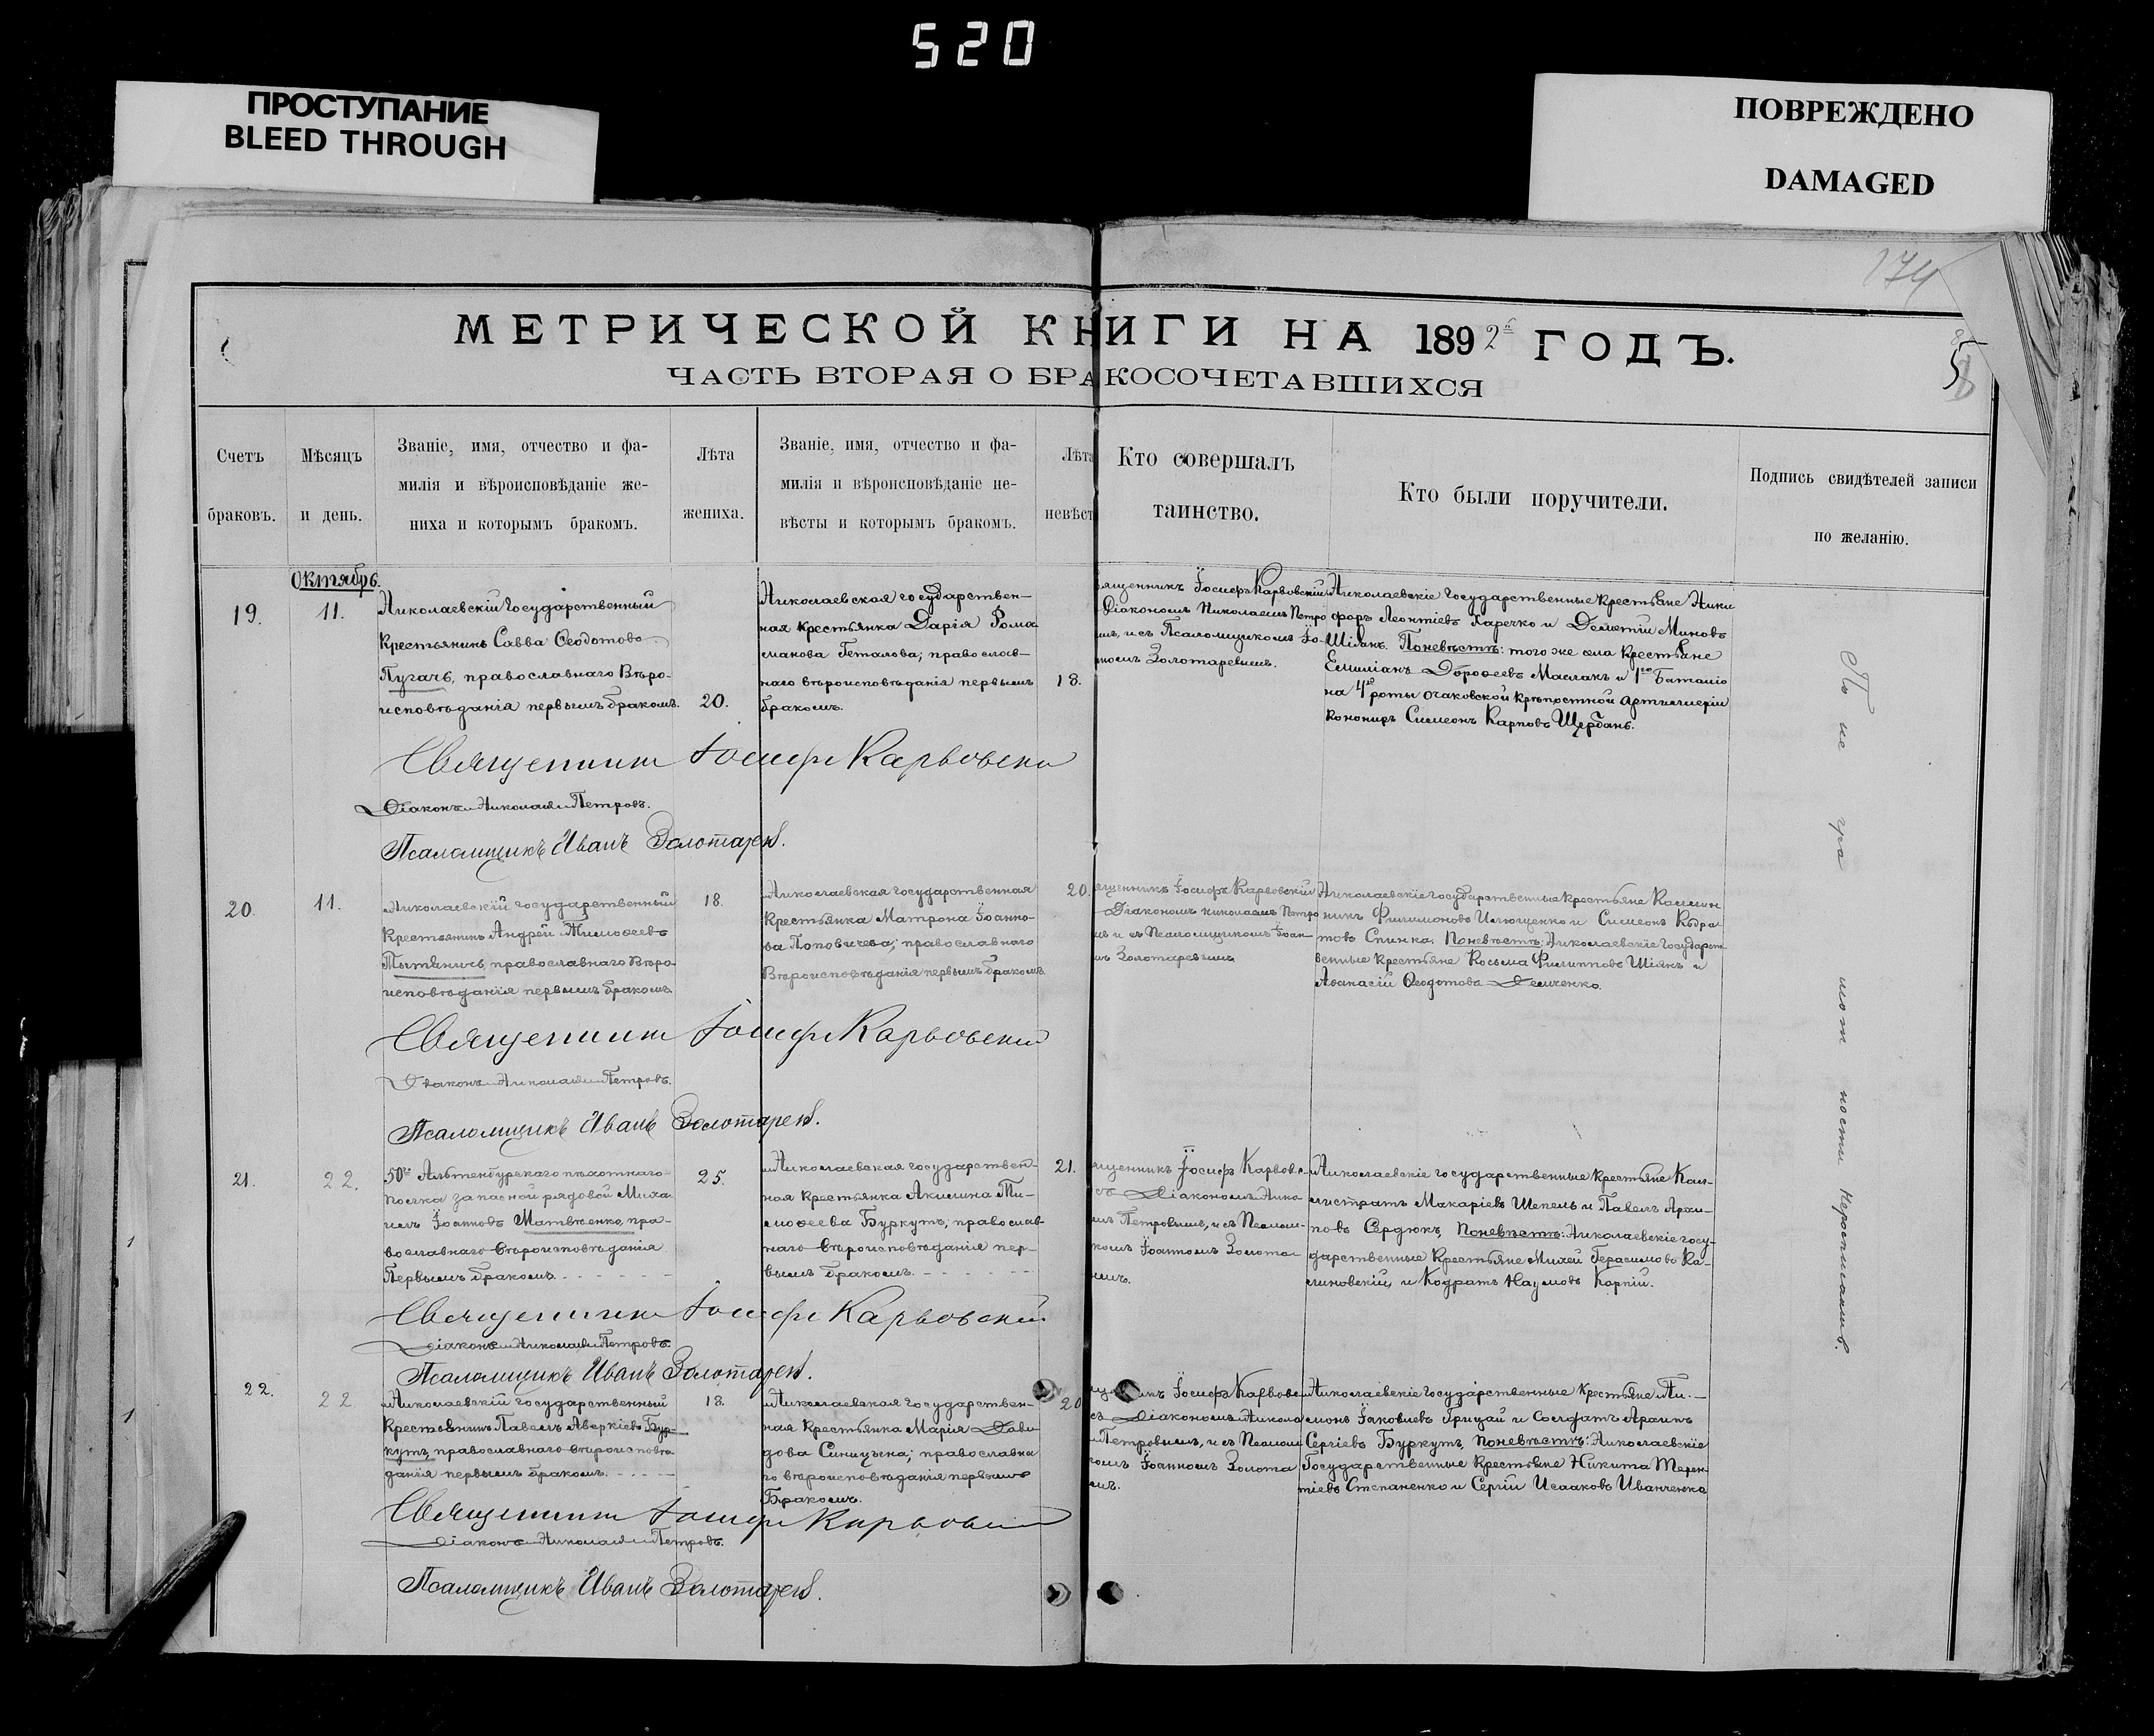 520
ПРОСТУПАНИЕ
BLEED THROUGH
ПОВРЕЖДЕНО
DAMAGED
174
МЕТРИЧЕСКОЙ КНИГИ НА 1892й ГОДЪ.
ЧАСТЬ ВТОРАЯ О БРАКОСОЧЕТАВШИХСЯ
Счетъ
браковъ.
Мѣсяцъ
и день.
Званіе, имя, отчество и фа-
милія и вѣроисповѣданіе же-
ниха и которымъ бракомъ.
Лѣта
жениха.
Званіе, имя, отчество и фа-
милія и вѣроисповѣданіе не-
вѣсты и которымъ бракомъ.
Лѣта
невѣст
Кто совершалъ
таинство.
Кто были поручители.
Подпись свидѣтелей записи
по желанію.
Октябрь.
19.
11.
Николаевскій Государственный
Крестьянинъ Савва Ѳеодотовъ
Пугачъ, православнаго Вѣро-
исповѣданія первымъ бракомъ.
20.
Николаевская государствен-
ная крестьянка Дарія Рома
манова Геталова; православ-
наго вѣроисповѣданія первымъ
бракомъ.
18.
ященникъ Іосифъ Карвовскій
Діакономъ Николаемъ Петро
ымъ, и съ Псаломщикомъ Іо-
нномъ Золотаревымъ.
Николаевскіе Государственные крестьяне Ники
форъ Леонтіевъ Царечко и Дементій Миновъ
Шіянъ. Поневѣстѣ: того же села крестьяне
Емиліанъ Дороѳеевъ Маслакъ и 1го Баталіо
на 4й роты очаковской крѣпостной артиллеріи
Канониръ Симеонъ Карповъ Щербань.
Священникъ Іосифъ Карвовскій
Діаконъ Николай Петровъ.
Псаломщикъ Иванъ Золотаревъ.
20.
11.
Николаевскій государственный
Крестьянинъ Андрей Тимоѳеевъ
Тытяничъ, православнаго Вѣро-
исповѣданія первымъ бракомъ.
18.
Николаевская государственная
Крестьянка Матрона Іоанно-
ва Поповичева; православнаго
Вѣроисповѣданія первымъ бракомъ.
20.
ященникъ Іосифъ Карвовскій
Діакономъ николаемъ Петро
мъ и съ Псаломщикомъ Іоан-
мъ Золотаревымъ
Николаевскіе государственные крестьяне Калин
никъ Филимоновъ Илющенко и Симеонъ Кодра-
товъ Спинка. Поневѣстѣ: Николаевскіе Государст
венные крестьяне Косьма Филипповъ Шіянъ и
Аѳанасій Ѳеодотовъ Демченко.
Священникъ Іосифъ Карвовскій
Діаконъ Николай Петровъ.
Псаломщикъ Иванъ Золотаревъ.
21.
22.
50го Альтенбургскаго пѣхотнаго
полка запасной рядовой Миха
илъ Іоанновъ Матвѣенко, пра-
вославнаго вѣроисповѣданія
Первымъ бракомъ.
25.
Николаевская государствен-
ная крестьянка Акилина Ти-
моѳеева Буркутъ; православ-
наго вѣроисповѣданія пер-
вымъ бракомъ.
21.
ященникъ Іосифъ Карвовс-
съ Діакономъ Нико
мъ Петровымъ, и съ Псалом-
комъ Іоанномъ Золота
ымъ.
Николаевскіе государственные крестьяне Кал-
листратъ Макаріевъ Шепель и Павелъ Архи-
повъ Сердюкъ, Поневѣстѣ: Николаевскіе госу-
дарственные Крестьяне Михей Герасимовъ Ка-
линовскій, и Кодратъ Наумовъ Корпій.
Священникъ Іосифъ Карвовскій
Діаконъ Николай Петровъ.
Псаломщикъ Иванъ Золотаревъ.
22.
22
Николаевскій государственный
Крестьянинъ Павелъ Аверкіевъ Бур-
кутъ, православнаго вѣроисповѣ
данія первымъ бракомъ.
18.
Николаевская государствен-
ная Крестьянка Марія Дави
дова Синицына; православна
го вѣроисповѣданія первымъ
Бракомъ.
20
икъ Іосифъ Карвовс
съ Діакономъ Никола
Петровымъ, и съ Псалом
комъ Іоанномъ Золота
ымъ.
Николаевскіе Государственные крестьяне Ти-
монъ Іаковлевъ Грицай и Солдатъ Архипъ
Сергіевъ Буркутъ, поневѣстѣ: Николаевскіе
Государственные Крестьяне Никита Терен-
тіевъ Степаненко и Сергій Исааковъ Иванченко
Священникъ Іосифъ Карвовскій
Діаконъ Николай Петровъ.
Псаломщикъ Иванъ Золотаревъ.